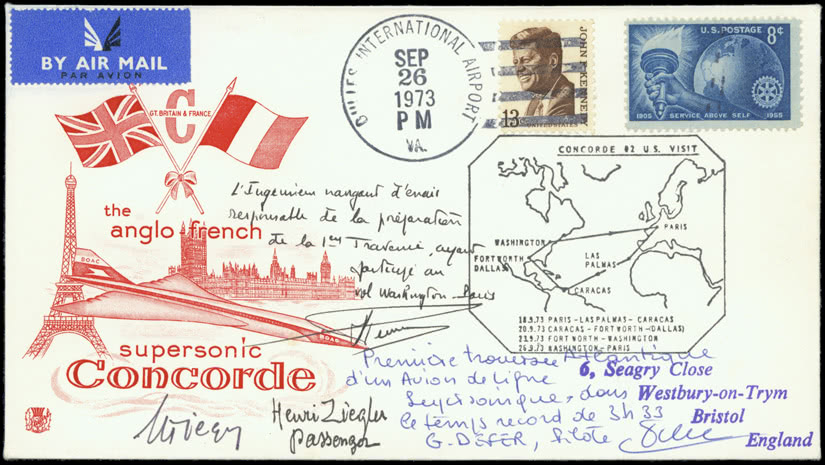 BY AIR MAIL
PAR AVION
DULLES INTERNATIONAL AIRPORT
SEP
26
1973
PM
VA.
JOHN F. KENNEDY
13¢
UNITED STATES
U.S. POSTAGE 8¢
1905 SERVICE ABOVE SELF 1955
C
GT. BRITAIN & FRANCE
the
anglo french
BOAC
BOAC
supersonic
Concorde
L'Ingénieur navigant d'essais
responsable de la préparation
de la 1ère Traversée, ayant
participé au
vol Washington-Paris
CONCORDE 02 U.S. VISIT
WASHINGTON
PARIS
FORT WORTH
DALLAS
LAS
PALMAS
CARACAS
18.9.73 PARIS-LAS PALMAS-CARACAS
20.9.73 CARACAS-FORT WORTH-(DALLAS)
23.9.73 FORT WORTH-WASHINGTON
26.9.73 WASHINGTON-PARIS
Première traversée Atlantique
d'un Avion de ligne
Supersonique dans
le temps record de 3h 33
G. DEFER, Pilote
6, Seagry Close
Westbury-on-Trym
Bristol
England
Henri Ziegler
passenger